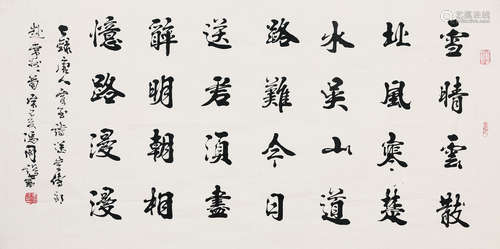 雪晴雲散
北風寒楚
水吳山道
路難今日
送君須盡
醉明朝相
憶路漫漫
錄唐人賈至詩送李侍郎
赴常州